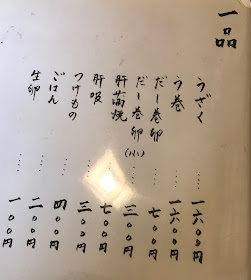 一品
うざく……一六〇〇円
う巻……一六〇〇円
だし巻卵……七〇〇円
だし巻卵(小)……三〇〇円
肝蒲焼……七〇〇円
肝吸……三〇〇円
つけもの……四〇〇円
ごはん……二〇〇円
生卵……一〇〇円